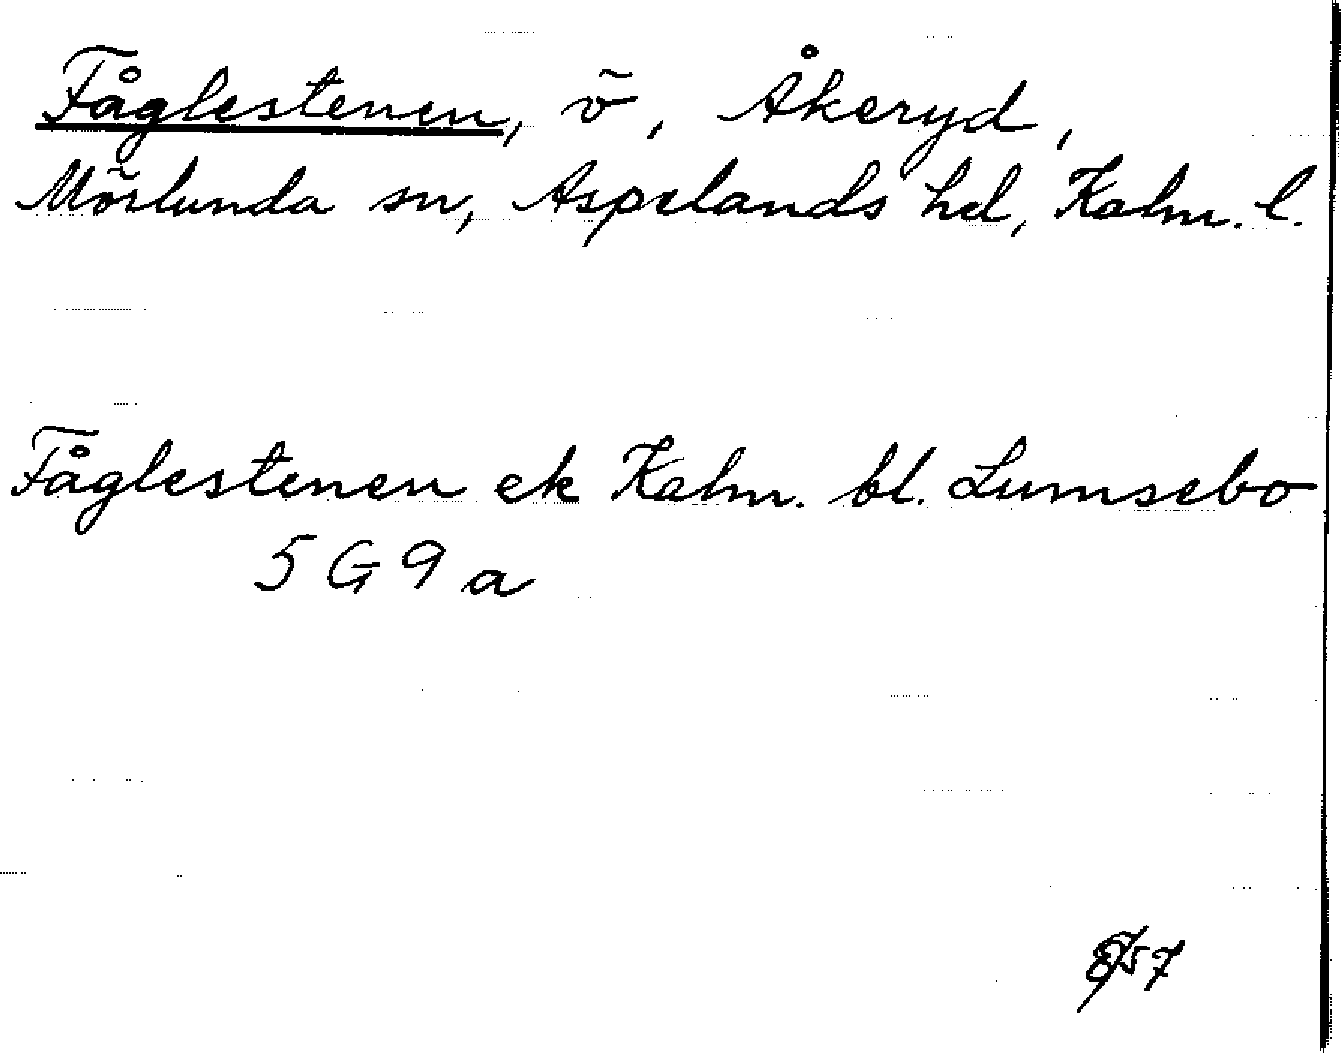 Fåglestenen, ö, Åkeryd,
Mörlunda sn, Aspelands hd, Kalm. l.
Fåglestenen ek Kalm. bl. Lumsebo
5 G 9 a